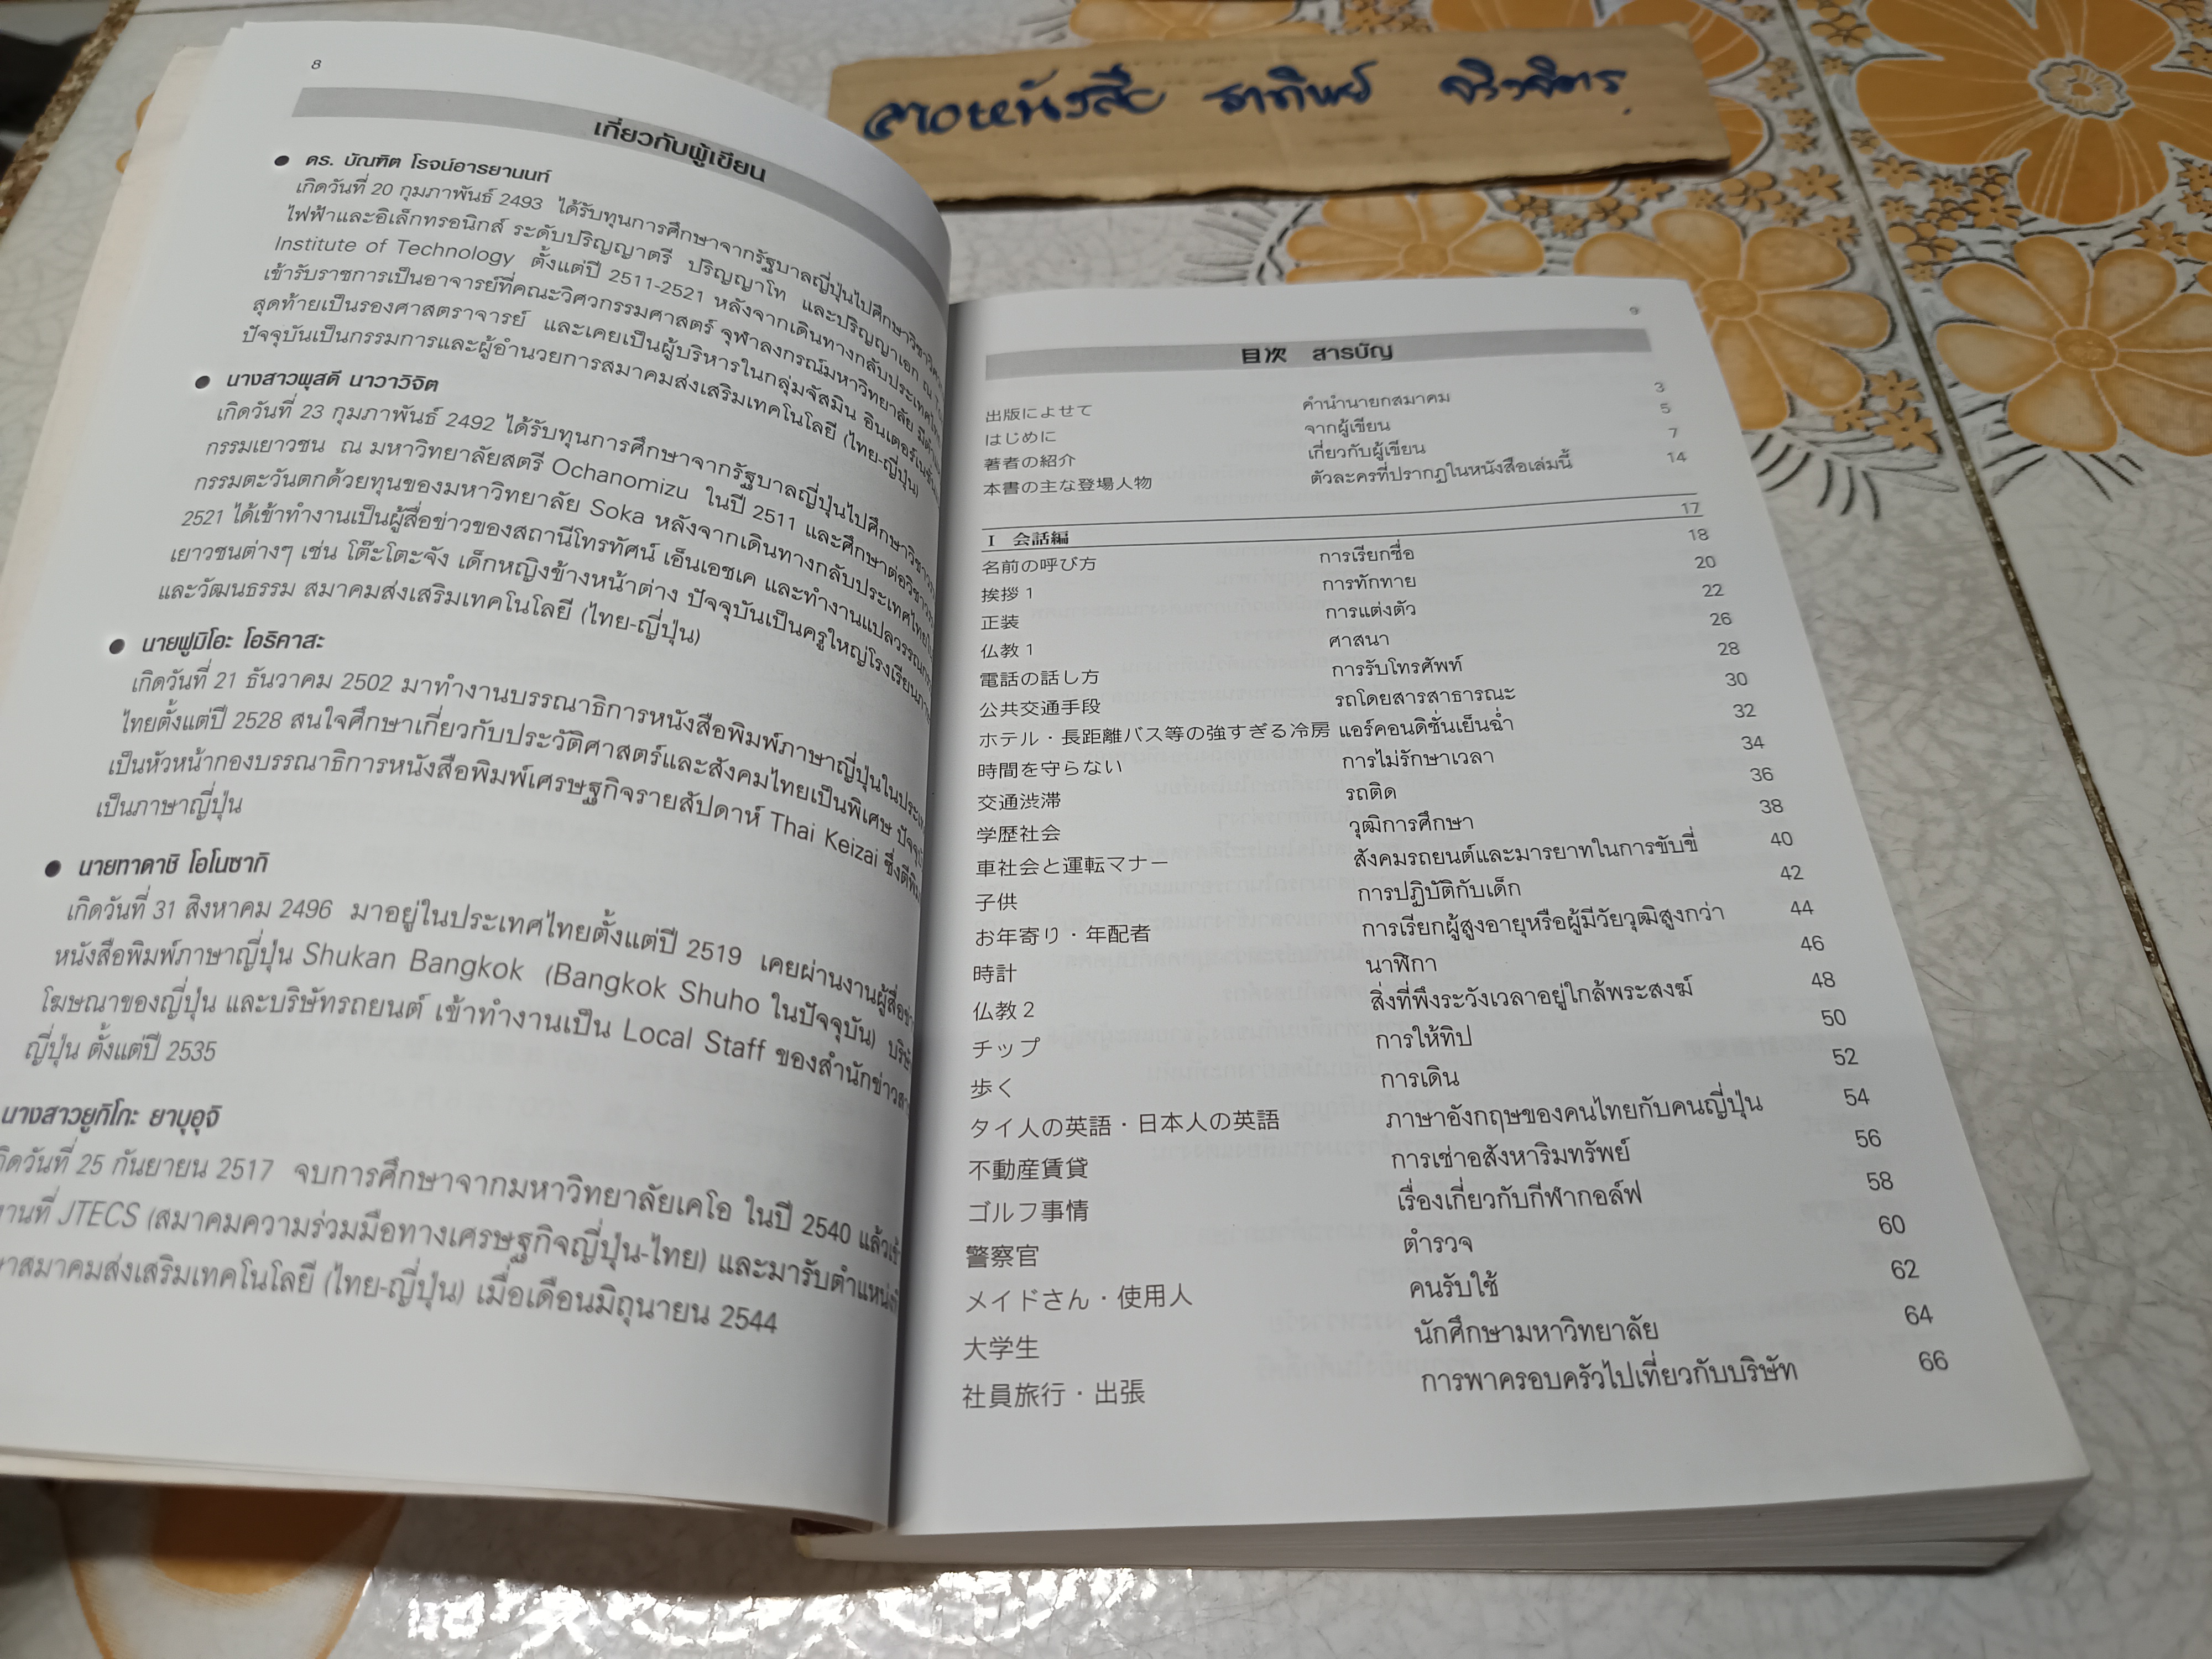 ขายหนังสือ ธาทิพย์ จริงจิตร
8
เกี่ยวกับผู้เขียน
● ดร. บัณฑิต โรจน์อารยานนท์
เกิดวันที่ 20 กุมภาพันธ์ 2493 ได้รับทุนการศึกษาจากรัฐบาลญี่ปุ่นไปศึกษาวิชา
ไฟฟ้าและอิเล็กทรอนิกส์ ระดับปริญญาตรี ปริญญาโท และปริญญาเอก ณ
Institute of Technology ตั้งแต่ปี 2511-2521 หลังจากเดินทางกลับประเทศไทย
เข้ารับราชการเป็นอาจารย์ที่คณะวิศวกรรมศาสตร์ จุฬาลงกรณ์มหาวิทยาลัย
สุดท้ายเป็นรองศาสตราจารย์ และเคยเป็นผู้บริหารในกลุ่มจัสมิน อินเตอร์เนชั่น
ปัจจุบันเป็นกรรมการและผู้อำนวยการสมาคมส่งเสริมเทคโนโลยี (ไทย-ญี่ปุ่น)
● นางสาวผุสดี นาวาวิจิต
เกิดวันที่ 23 กุมภาพันธ์ 2492 ได้รับทุนการศึกษาจากรัฐบาลญี่ปุ่นไปศึกษาวิชา
กรรมเยาวชน ณ มหาวิทยาลัยสตรี Ochanomizu ในปี 2511 และศึกษาต่อวิชา
กรรมตะวันตกด้วยทุนของมหาวิทยาลัย Soka หลังจากเดินทางกลับประเทศไทย
2521 ได้เข้าทำงานเป็นผู้สื่อข่าวของสถานีโทรทัศน์ เอ็นเอชเค และทำงานแปล
เยาวชนต่างๆ เช่น โต๊ะโตะจัง เด็กหญิงข้างหน้าต่าง ปัจจุบันเป็นครูใหญ่โรงเรียน
และวัฒนธรรม สมาคมส่งเสริมเทคโนโลยี (ไทย-ญี่ปุ่น)
● นายฟูมิโอะ โอริคาสะ
เกิดวันที่ 21 ธันวาคม 2502 มาทำงานบรรณาธิการหนังสือพิมพ์ภาษาญี่ปุ่นใน
ไทยตั้งแต่ปี 2528 สนใจศึกษาเกี่ยวกับประวัติศาสตร์และสังคมไทยเป็นพิเศษ
เป็นหัวหน้ากองบรรณาธิการหนังสือพิมพ์เศรษฐกิจรายสัปดาห์ Thai Keizai ซึ่งตีพิมพ์
เป็นภาษาญี่ปุ่น
● นายทาดาชิ โอโนซากิ
เกิดวันที่ 31 สิงหาคม 2496 มาอยู่ในประเทศไทยตั้งแต่ปี 2519 เคยผ่านงานผู้สื่อ
หนังสือพิมพ์ภาษาญี่ปุ่น Shukan Bangkok (Bangkok Shuho ในปัจจุบัน)
โฆษณาของญี่ปุ่น และบริษัทรถยนต์ เข้าทำงานเป็น Local Staff ของสำนักข่าว
ญี่ปุ่น ตั้งแต่ปี 2535
นางสาวยูกิโกะ ยาบุอุจิ
กิดวันที่ 25 กันยายน 2517 จบการศึกษาจากมหาวิทยาลัยเคโอ ในปี 2540 แล้ว
านที่ JTECS (สมาคมความร่วมมือทางเศรษฐกิจญี่ปุ่น-ไทย) และมารับตำแหน่ง
าสมาคมส่งเสริมเทคโนโลยี (ไทย-ญี่ปุ่น) เมื่อเดือนมิถุนายน 2544
9
目次 สารบัญ
出版によせて คำนำนายกสมาคม 3
はじめに จากผู้เขียน 5
著者の紹介 เกี่ยวกับผู้เขียน 7
本書の主な登場人物 ตัวละครที่ปรากฏในหนังสือเล่มนี้ 14
I 会話編 17
名前の呼び方 การเรียกชื่อ 18
挨拶 1 การทักทาย 20
正装 การแต่งตัว 22
仏教 1 ศาสนา 26
電話の話し方 การรับโทรศัพท์ 28
公共交通手段 รถโดยสารสาธารณะ 30
ホテル・長距離バス等の強すぎる冷房 แอร์คอนดิชั่นเย็นฉ่ำ 32
時間を守らない การไม่รักษาเวลา 34
交通渋滞 รถติด 36
学歴社会 วุฒิการศึกษา 38
車社会と運転マナー สังคมรถยนต์และมารยาทในการขับขี่ 40
子供 การปฏิบัติกับเด็ก 42
お年寄り・年配者 การเรียกผู้สูงอายุหรือผู้มีวัยวุฒิสูงกว่า 44
時計 นาฬิกา 46
仏教 2 สิ่งที่พึงระวังเวลาอยู่ใกล้พระสงฆ์ 48
チップ การให้ทิป 50
歩く การเดิน 52
タイ人の英語・日本人の英語 ภาษาอังกฤษของคนไทยกับคนญี่ปุ่น 54
不動産賃貸 การเช่าอสังหาริมทรัพย์ 56
ゴルフ事情 เรื่องเกี่ยวกับกีฬากอล์ฟ 58
警察官 ตำรวจ 60
メイドさん・使用人 คนรับใช้ 62
大学生 นักศึกษามหาวิทยาลัย 64
社員旅行・出張 การพาครอบครัวไปเที่ยวกับบริษัท 66